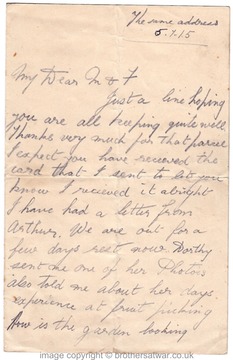 The same address
5.7.15
My Dear M & F
Just a line hoping
you are all keeping quite well
Thanks very much for that parcel
I expect you have received the
card that I sent to let you
know I recieved it alright
I have had a letter from
Arthur. We are out for a
few days rest now Dorthy
sent me one of her Photos
also told me about her days
experience at fruit picking
How is the garden looking
image copyright © brothersatwar.co.uk